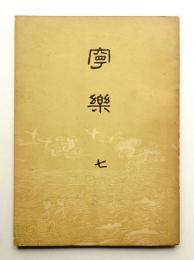 寧樂
七